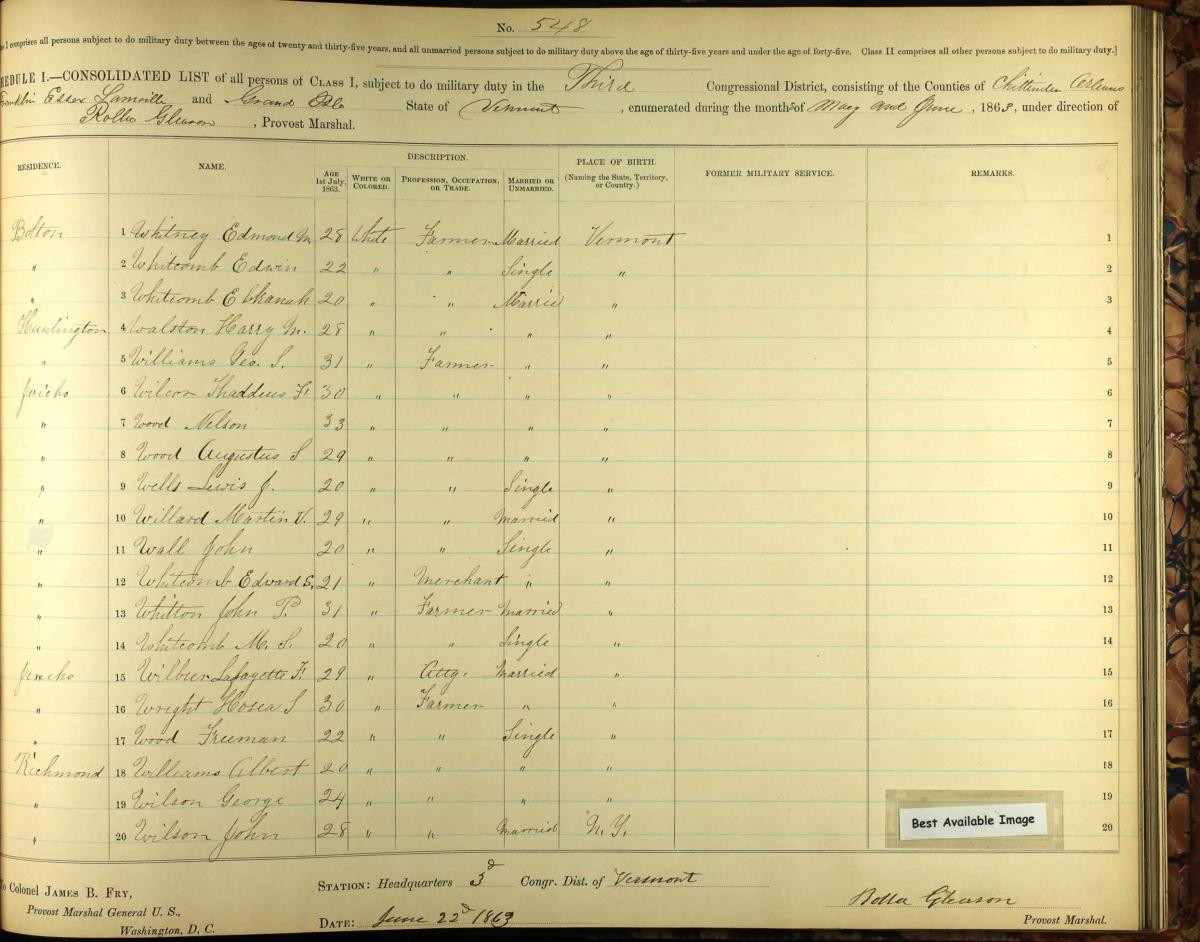 No. 548
I comprises all persons subject to do military duty between the ages of twenty and thirty-five years, and all unmarried persons subject to do military duty above the age of thirty-five years and under the age of forty-five. Class II comprises all other persons subject to do military duty.]
EDULE I.—CONSOLIDATED LIST of all persons of CLASS I, subject to do military duty in the Third Congressional District, consisting of the Counties of Chittenden Orleans
Franklin Essex Lamoille and Grand Isle State of Vermont, enumerated during the months of May and June, 1863, under direction of
Rollin Gleason, Provost Marshal.
RESIDENCE. NAME. DESCRIPTION. PLACE OF BIRTH. FORMER MILITARY SERVICE. REMARKS.
AGE 1st July, 1863. WHITE OR COLORED. PROFESSION, OCCUPATION, OR TRADE. MARRIED OR UNMARRIED. (Naming the State, Territory, or Country.)
Bolton 1 Whitney Edmond M. 28 White Farmer Married Vermont 1
" 2 Whitcomb Edwin 22 " " Single " 2
" 3 Whitcomb Elkanah 20 " " Married " 3
Huntington 4 Walston Harry M. 28 " " " " 4
" 5 Williams Geo. S. 31 " Farmer " " 5
Jericho 6 Wilcox Thaddeus F. 30 " " " " 6
" 7 Wood Nelson 33 " " " " 7
" 8 Wood Augustus S 29 " " " " 8
" 9 Wells Lewis J. 20 " " Single " 9
" 10 Willard Martin V. 29 " " Married " 10
" 11 Wall John 20 " " Single " 11
" 12 Whitcomb Edward S. 21 " Merchant " " 12
" 13 Whitton John P. 31 " Farmer Married " 13
" 14 Whitcomb M. S. 20 " " Single " 14
Jericho 15 Wilbur Lafayette F. 29 " Atty. Married " 15
" 16 Wright Hosea S 30 " Farmer " " 16
" 17 Wood Freeman 22 " " Single " 17
Richmond 18 Williams Albert 20 " " " " 18
" 19 Wilson George 24 " " " " 19
" 20 Wilson John 28 " " Married N.Y. 20
Best Available Image
o Colonel JAMES B. FRY, STATION: Headquarters 3d Congr. Dist. of Vermont
Provost Marshal General U. S., Rollin Gleason
Washington, D. C. DATE: June 22d 1863 Provost Marshal.